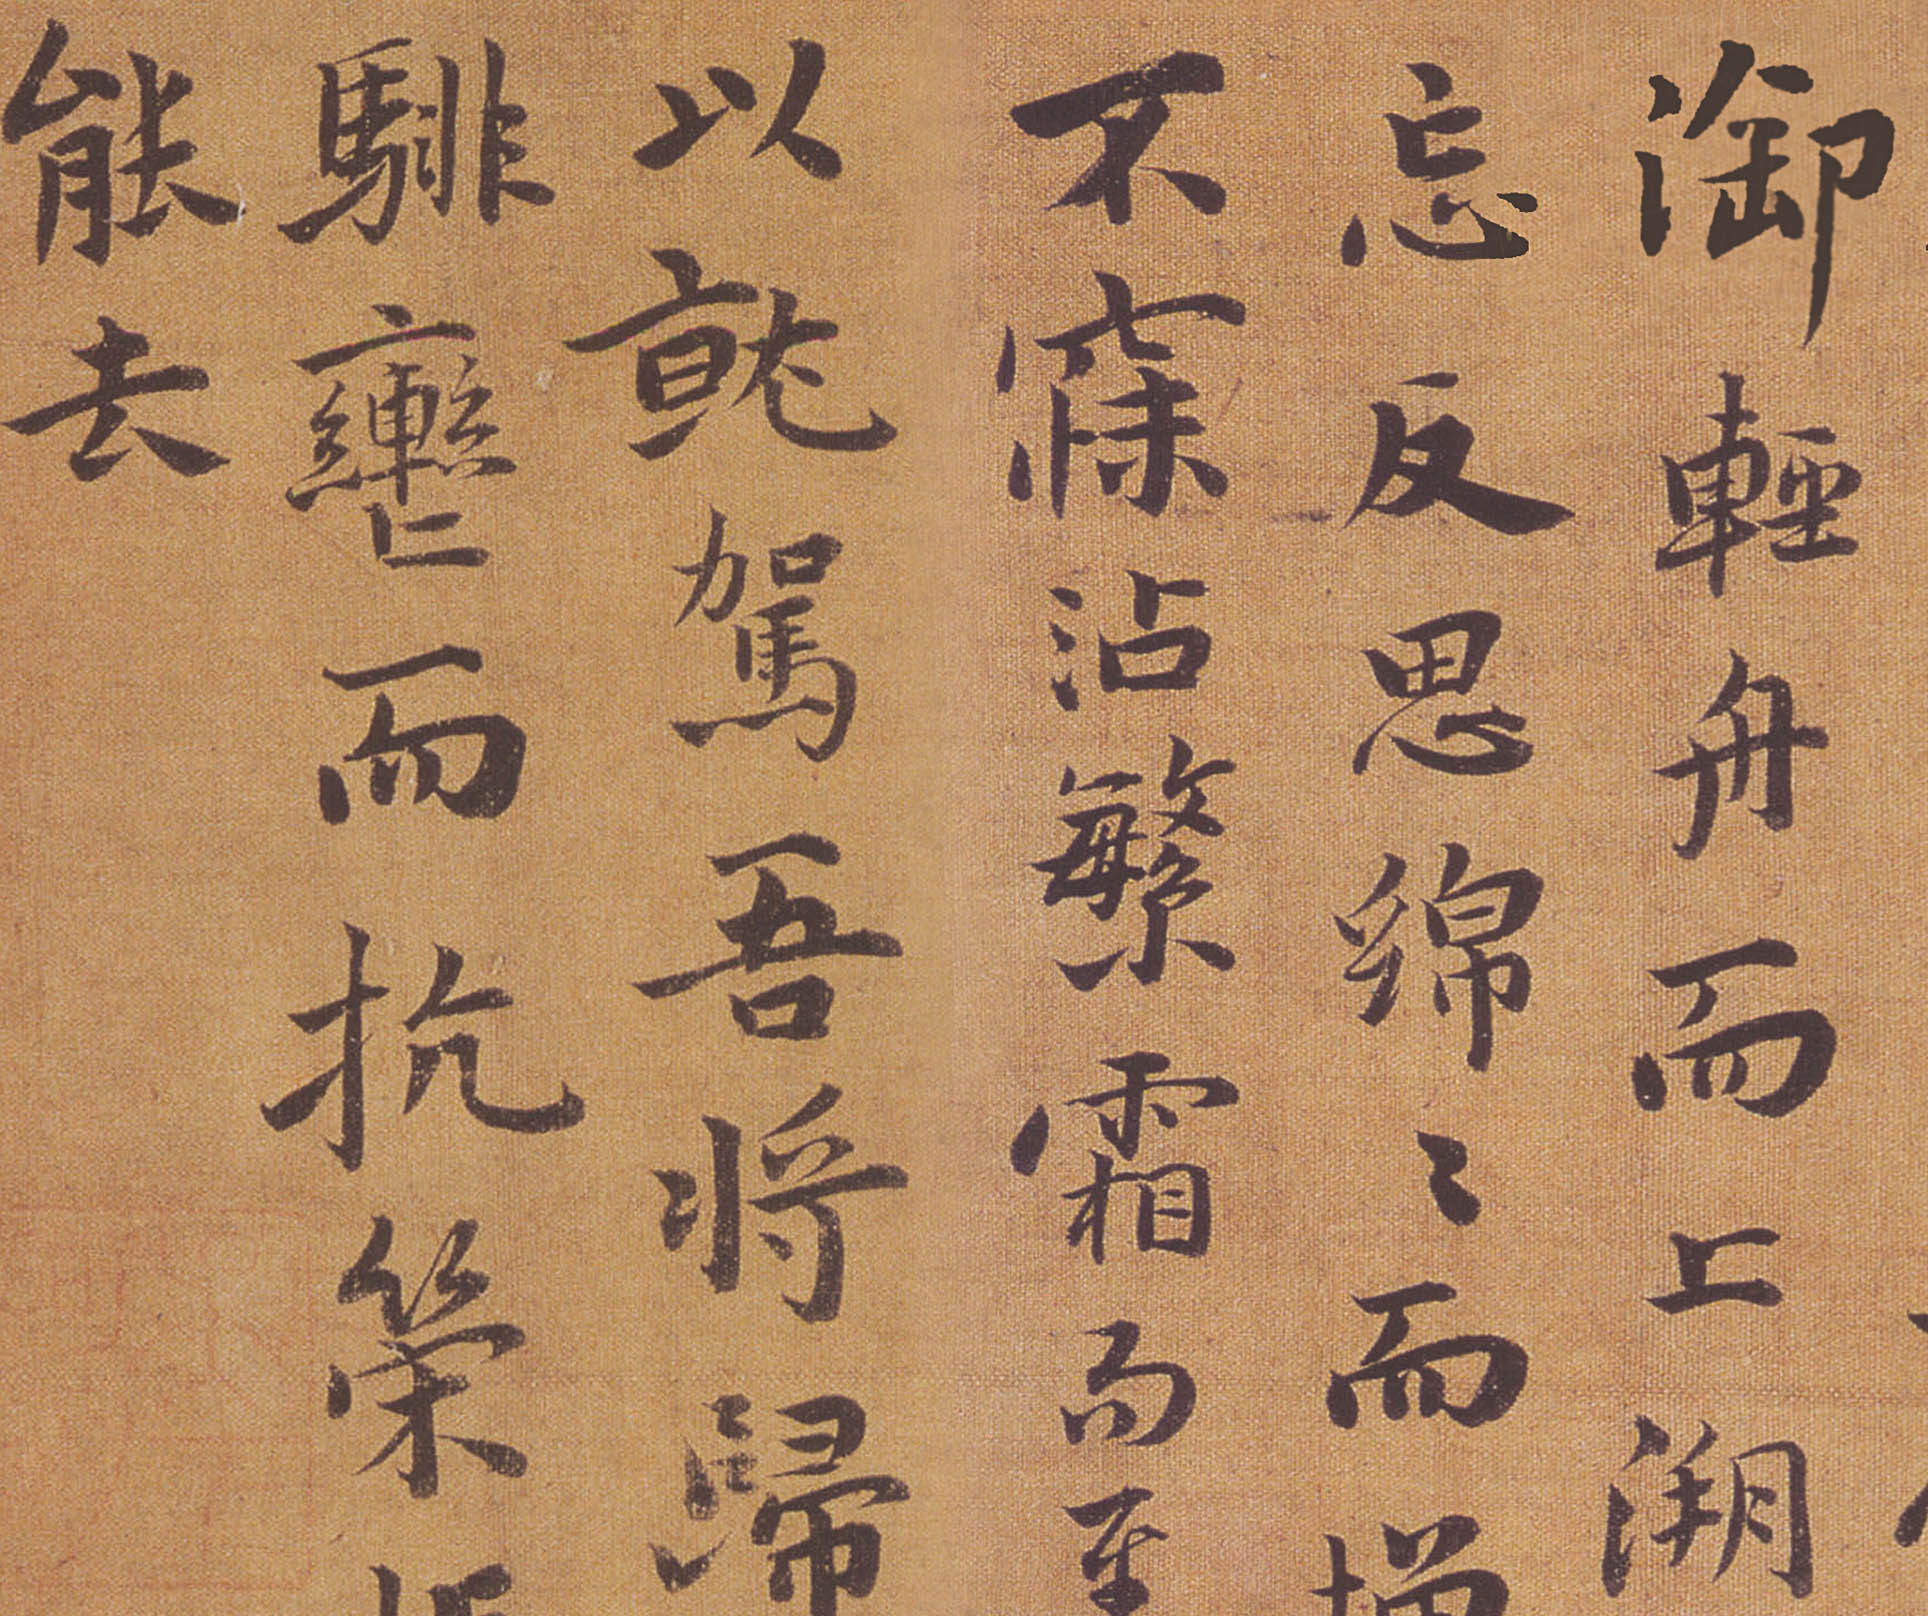 御輕舟而上溯
忘反思綿〻而增
不寐沾繁霜而至
以就駕吾將歸
騑轡而抗策
能去